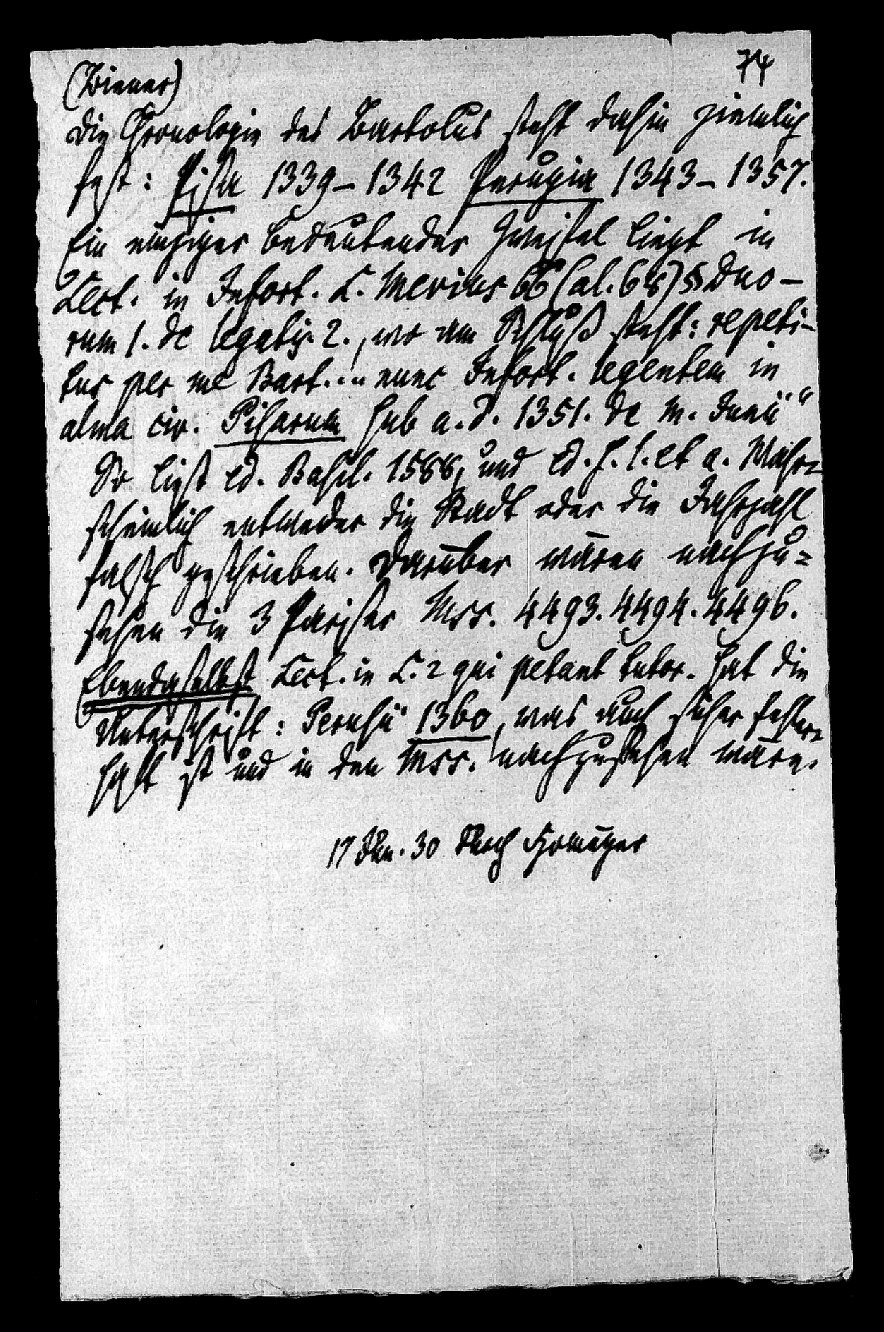 (Wiener)
74
Die Chronologie des Bartolus steht dahin ziemlich
fest: Pisa 1339–1342 Perugia 1343–1357.
Ein einziger bedeutender Zweifel liegt in
Lect. in Infort. L. Mevius 66 (al. 65) § Duo-
rum 1. de legatis 2., wo am Schluß steht: repeti-
tus per me Bart... Infort. legentem in
alma civ. Pisarum sub a. D. 1351. de m. Junii"
So liest ed. Basil. 1588, und ed. s. l. et a. Wahr-
scheinlich entweder die Stadt oder die Jahrzahl
falsch geschrieben. Darüber wären nachzu-
sehen die 3 Pariser Mss. 4493. 4494. 4496.
Ebendaselbst Lect. in L. 2 qui petant tutor. hat die
Unterschrift: Perusii 1360, was auch sicher fehler-
haft ist und in den Mss. nachzusehen wäre.
17 30 durch